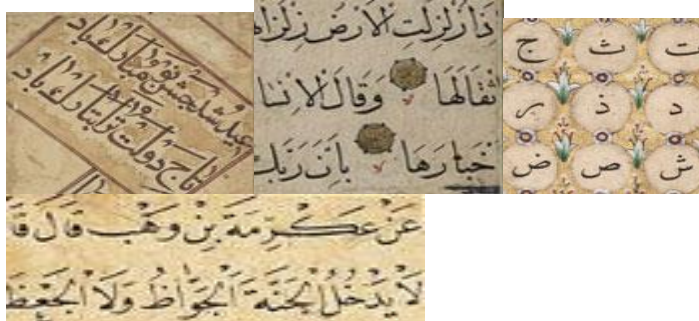 عید شد جشن نوروز مبارک باد
تاج دولت ترا مبارک باد
ذا زلزلت الارض زلزاله
ثقالها وقال الانسا
خبارها بان ربك
ت ث ج
د ذ ر
ش ص ض
عَنْ عِكْرِمَةَ بْنِ وَهْبٍ قَالَ قَا
لَا يَدْخُلُ الْجَنَّةَ الْجَوَّاظُ وَلَا الْجَعْظَ